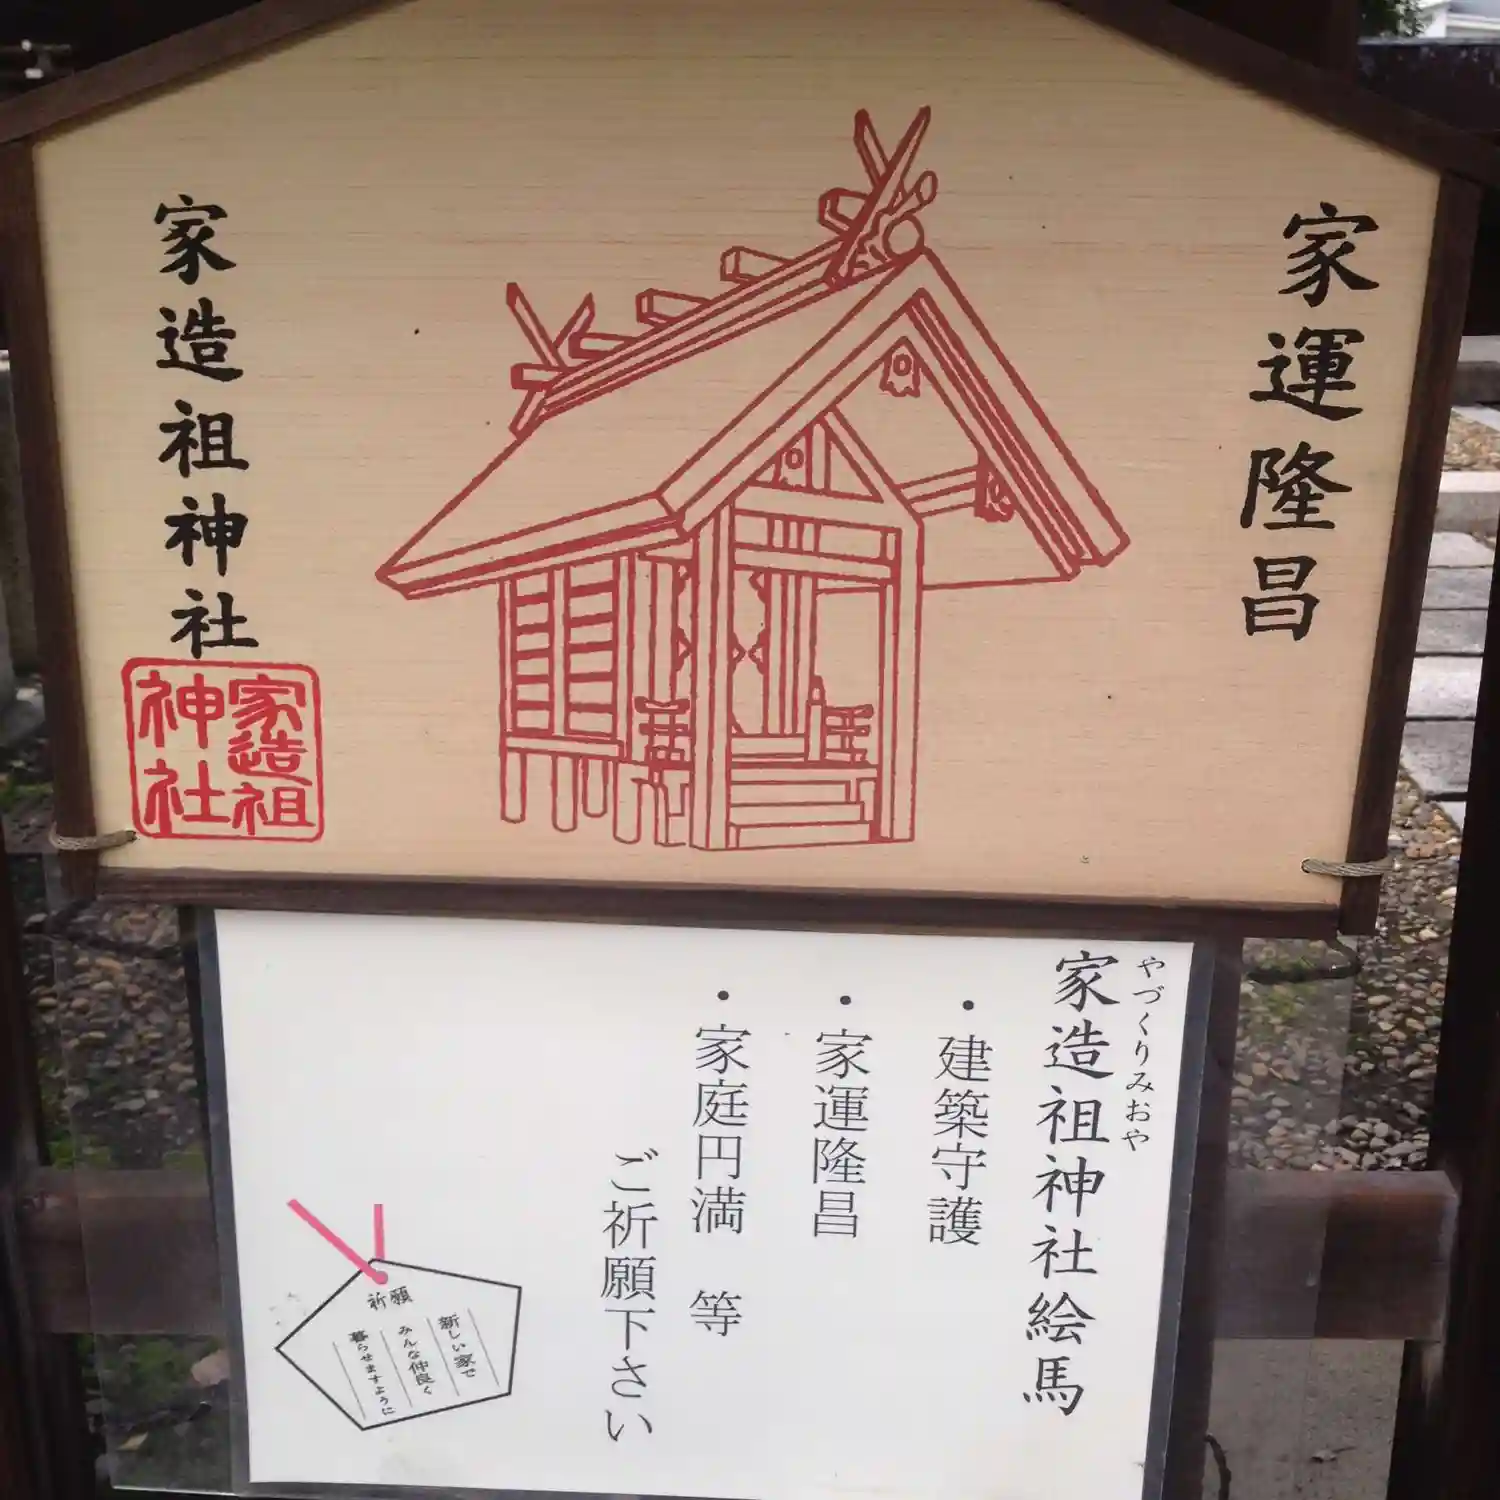 家運隆昌
家造祖神社
家造祖
神社
やづくりみおや
家造祖神社絵馬
・建築守護
・家運隆昌
・家庭円満 等
ご祈願下さい
祈願
新しい家で
みんな仲良く
暮らせますように